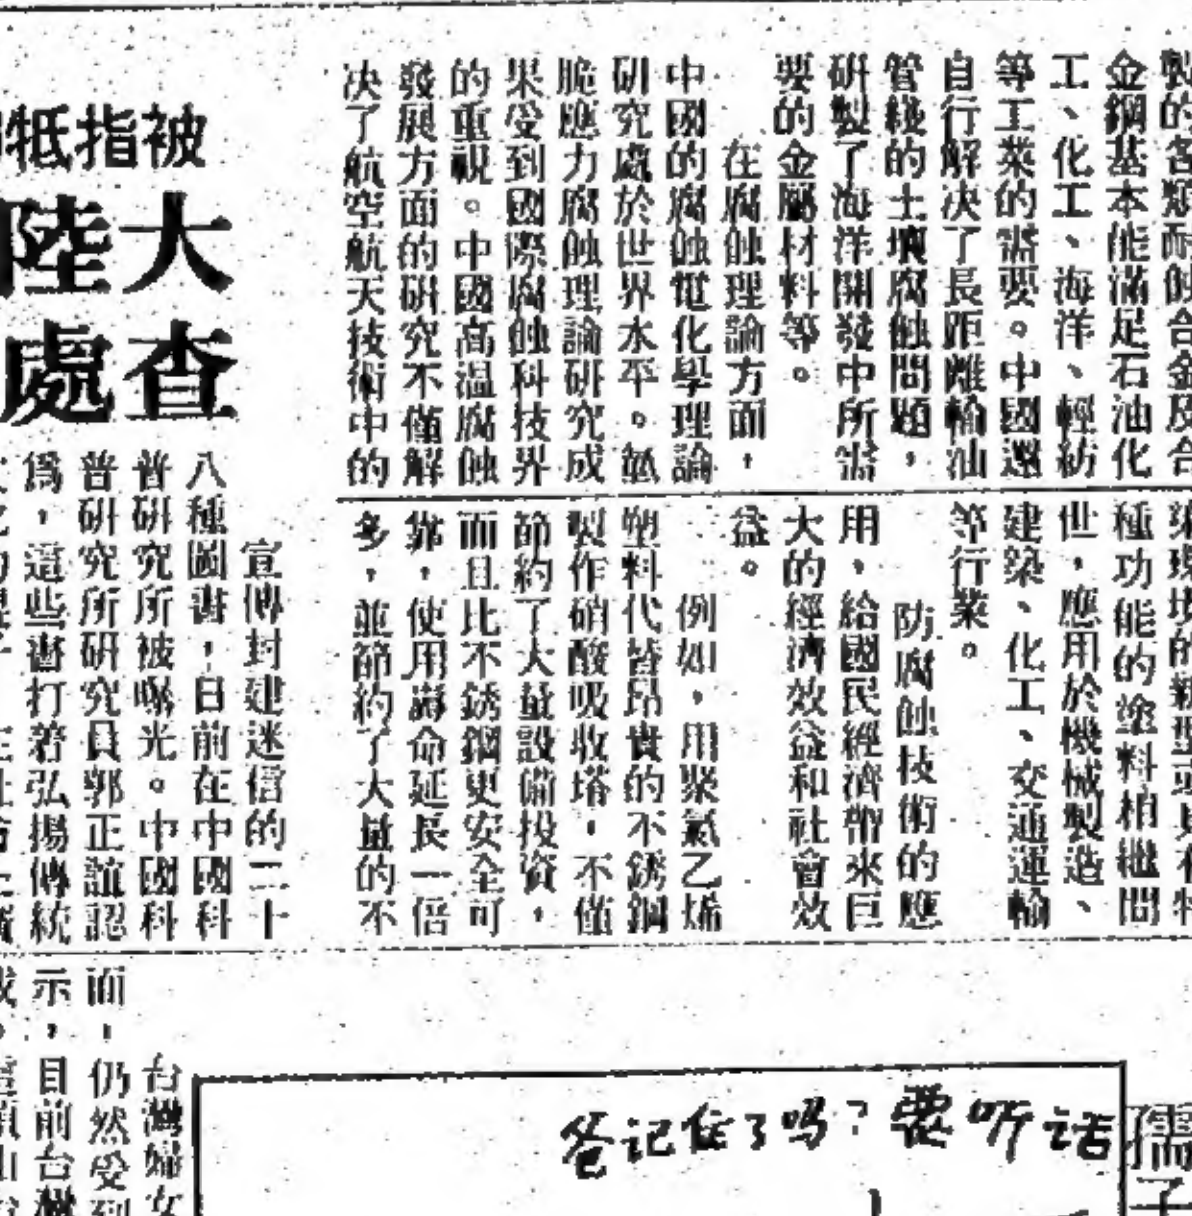 製的各類耐蝕合金及合
金鋼基本能滿足石油化
工、化工、海洋、輕紡
等工業的需要。中國還
自行解決了長距離輸油
管綫的土壤腐蝕問題，
研製了海洋開發中所需
要的金屬材料等。
在腐蝕理論方面，
中國的腐蝕電化學理論
研究處於世界水平。氫
脆應力腐蝕理論研究成
果受到國際腐蝕科技界
的重視。中國高溫腐蝕
發展方面的研究不僅解
决了航空航天技術中的
種功能的塗料相繼問
世，應用於機械製造、
建築、化工、交通運輸
等行業。
防腐蝕技術的應
用，給國民經濟帶來巨
大的經濟效益和社會效
益。
例如，用聚氯乙烯
塑料代替昂貴的不銹鋼
製作硝酸吸收塔，不僅
節約了大量設備投資，
而且比不銹鋼更安全可
靠，使用壽命延長一倍
多，並節約了大量的不
被指牴
大陸
查處
宣傳封建迷信的二十
八種圖書，日前在中國科
普研究所被曝光。中國科
普研究所研究員郭正誼認
爲，這些書打着弘揚傳統
台灣婦女
面，仍然受到
示，目前台灣
孺子
爸记住了吗？要听话